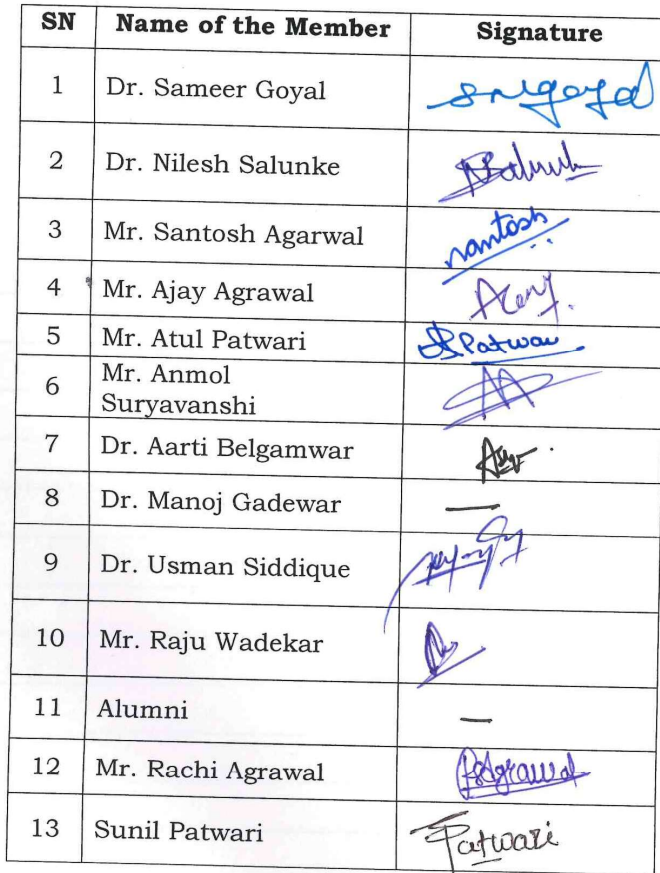 SN Name of the Member Signature
1 Dr. Sameer Goyal srgoyal
2 Dr. Nilesh Salunke
3 Mr. Santosh Agarwal santosh
4 Mr. Ajay Agrawal
5 Mr. Atul Patwari Patwari
6 Mr. Anmol
Suryavanshi
7 Dr. Aarti Belgamwar
8 Dr. Manoj Gadewar —
9 Dr. Usman Siddique
10 Mr. Raju Wadekar
11 Alumni —
12 Mr. Rachi Agrawal RSAgrawal
13 Sunil Patwari Patwari